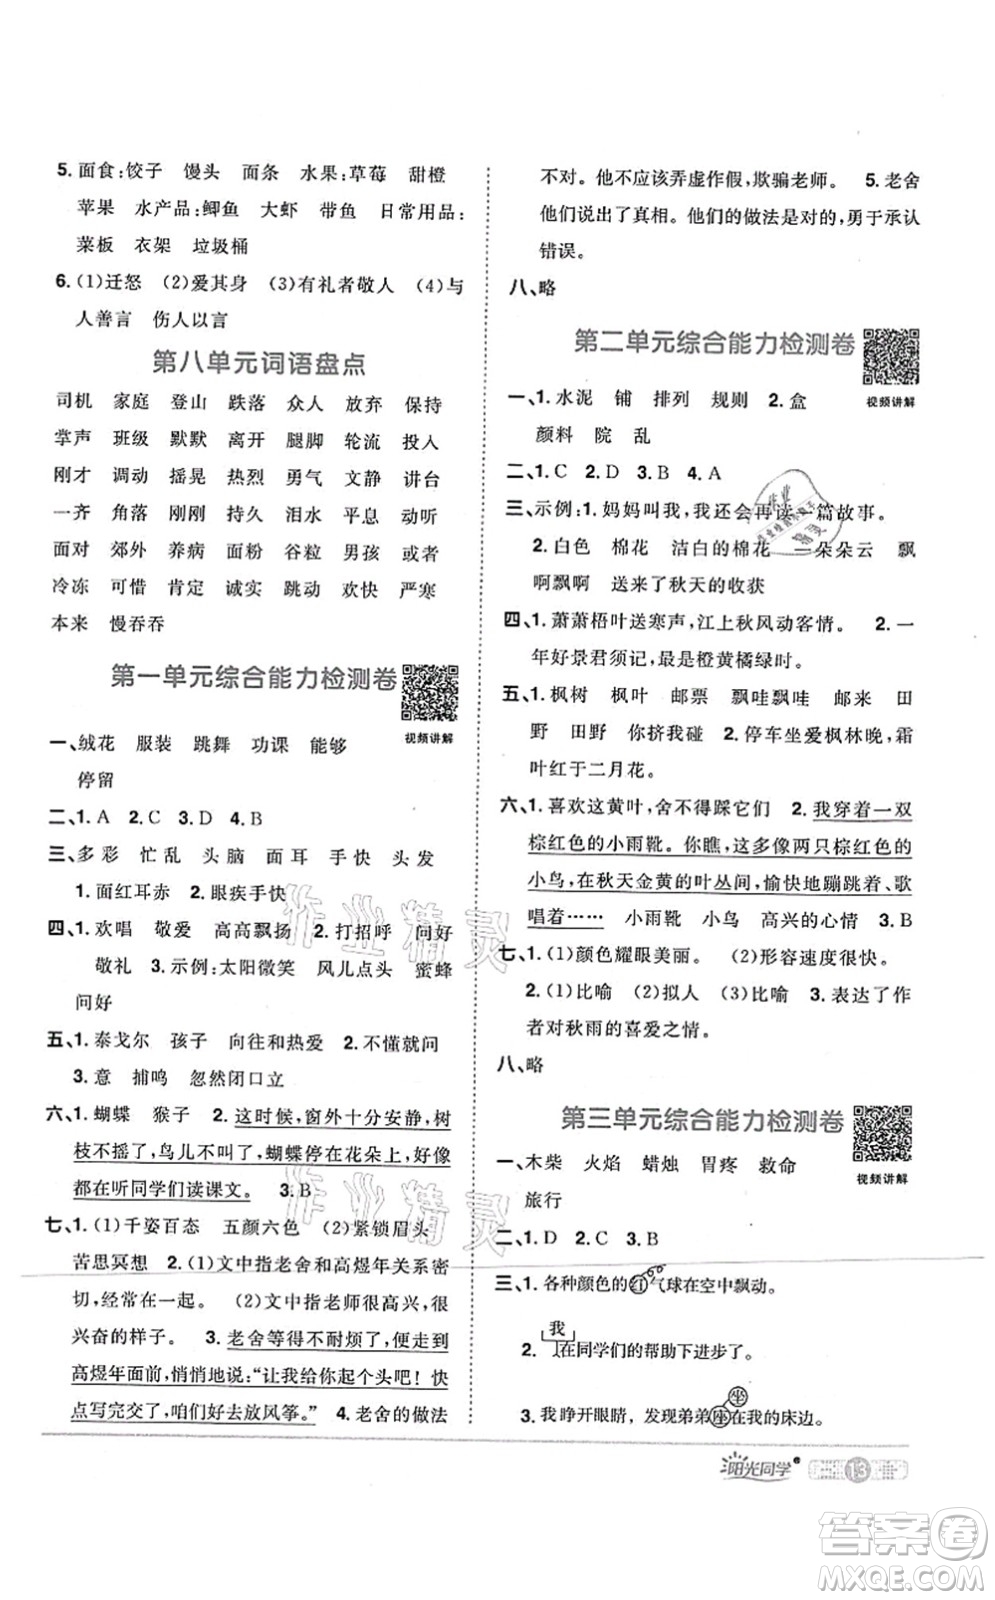 5. 面食:饺子 馒头 面条 水果:草莓 甜橙
苹果 水产品:鲫鱼 大虾 带鱼 日常用品:
菜板 衣架 垃圾桶
6. (1)迁怒 (2)爱其身 (3)有礼者敬人 (4)与
人善言 伤人以言
第八单元词语盘点
司机 家庭 登山 跌落 众人 放弃 保持
掌声 班级 默默 离开 腿脚 轮流 投入
刚才 调动 摇晃 热烈 勇气 文静 讲台
一齐 角落 刚刚 持久 泪水 镇定 动听
面对 郊外 养病 面粉 谷粒 男孩 或者
冷冻 可惜 肯定 诚实 跳动 欢快 严寒
本来 慢吞吞
第一单元综合能力检测卷
视频讲解
一、绒花 服装 跳舞 功课 能够
停留
二、1. A 2. C 3. D 4. B
三、多彩 忙乱 头脑 面耳 手快 头发
1. 面红耳赤 2. 眼疾手快
四、1. 欢唱 敬爱 高高飘扬 2. 打招呼 问好
敬礼 3. 示例:太阳微笑 风儿点头 蜜蜂
问好
五、1. 泰戈尔 孩子 向往和热爱 2. 不懂就问
3. 意 捕鸣 忽然闭口立
六、1. 蝴蝶 猴子 2. 这时候,窗外十分安静,树
枝不摇了,鸟儿不叫了,蝴蝶停在花朵上,好像
都在听同学们读课文。 3. B
七、1. (1)千姿百态 五颜六色 (2)紧锁眉头
苦思冥想 2. (1)文中指老舍和高煜年关系密
切,经常在一起。 (2)文中指老师很高兴,很
兴奋的样子。 3. 老舍等得不耐烦了,便走到
高煜年面前,悄悄地说:“让我给你起个头吧!快
点写完交了,咱们好去放风筝。” 4. 老舍的做法
不对。他不应该弄虚作假,欺骗老师。 5. 老舍
他们说出了真相。他们的做法是对的,勇于承认
错误。
八、略
第二单元综合能力检测卷
视频讲解
一、1. 水泥 铺 排列 规则 2. 盒
颜料 院 乱
二、1. C 2. D 3. B 4. A
三、示例:1. 妈妈叫我,我还会再读一篇故事。
2. 白色 棉花 洁白的棉花 一朵朵云 飘
啊飘啊 送来了秋天的收获
四、1. 萧萧梧叶送寒声,江上秋风动客情。 2. 一
年好景君须记,最是橙黄橘绿时。
五、1. 枫树 枫叶 邮票 飘哇飘哇 邮来 田
野 田野 你挤我碰 2. 停车坐爱枫林晚,霜
叶红于二月花。
六、1. 喜欢这黄叶,舍不得踩它们 2. 我穿着一双
棕红色的小雨靴。你瞧,这多像两只棕红色的
小鸟,在秋天金黄的叶丛间,愉快地蹦跳着、歌
唱着…… 小雨靴 小鸟 高兴的心情 3. B
七、1. (1)颜色耀眼美丽。 (2)形容速度很快。
2. (1)比喻 (2)拟人 (3)比喻 3. 表达了作
者对秋雨的喜爱之情。
八、略
第三单元综合能力检测卷
视频讲解
一、木柴 火焰 蜡烛 胃疼 救命
旅行
二、1. D 2. C 3. A 4. B
三、1. 各种颜色的红气球在空中飘动。
我
2. 在同学们的帮助下进步了。
坐
3. 我睁开眼睛,发现弟弟座在我的床边。
阳光同学
13
作业精灵
作业精灵
答案卷
MXQE.COM